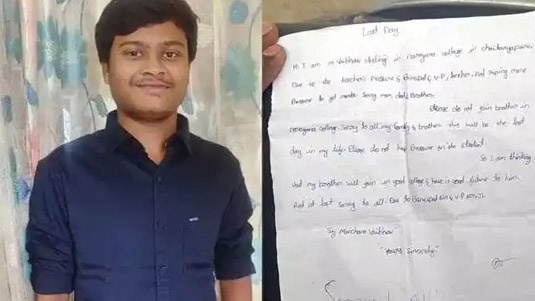 Last Day
Hi I am m Vaibhav studing in narayana college in
Due to the teachers Pressure & Principal & V.P, teacher. And more
Pressure to get marks. Sorry mom, dad & Brother.
Please do not join brother in
narayana College. Sorry to all my family & brother this will be the last
day in my life. Please do not Pressure on the student.
So I am thinking
that my brother will join in good college & have a good future to him.
And at last Sorry to all. Due to Principal & V.P
"Yours Sincerely"